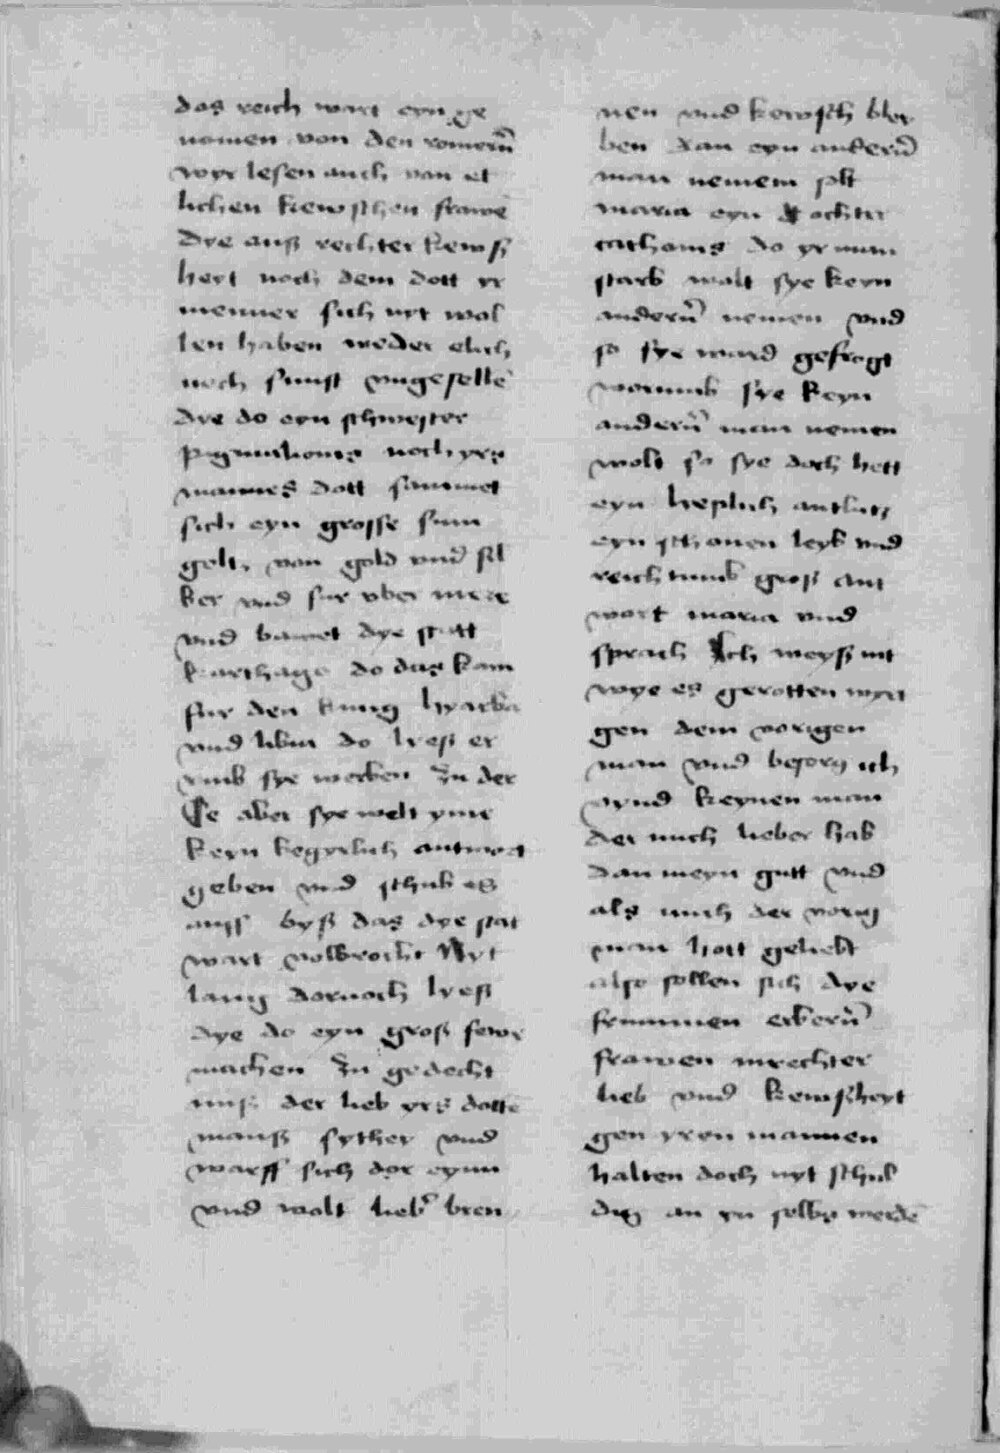 das reich wart eyn ge
nomen von den romern̄
wyr lesen auch van et
lichen kewschen frawē
Dye auß rechter kewß
heyt noch dem dott yr
menner sich nyt wol
len haben weder elich
noch sunst vngesellē
dye do eyn schwester
pigmalionis noch yrs
mannes dott sammet
sich eyn grosse sum
gelts von gold vnd sil
ber vnd fur vber mere
vnd bawet dye statt
karthago do das kam
fur den kunig hyarba
vnd libia do lyeß er
vmb sye werben Zu der
Ee aber sye welt yme
keyn begyrlich antwort
geben vnd schub es
auff byß das dye stat
wart volbrocht Nyt
lang dornoch lyeß
dye do eyn groß fewr
machen Zu gedecht
nuß der lieb yrs dottē
manß sythey vnd
warff sich dor eynn
vnd wolt lieber bren
nen vnd kewsch bley
ben dan eyn andern̄
man nemem solt
maria eyn dochter
cathonis do yr man
starb wolt sye keyn
andern̄ nemen vnd
so sye ward gefragt
worumb sye keyn
andern̄ man nemen
wolt so sye doch hett
eyn hepsich antlutz
eyn schonen leyb vnd
reichtumb groß ant
wort maria vnd
sprach Ich weyß nit
wye es gerotten wyrt
gen dem vorigen
man vnd besorg ich
vynd keynen man
der mich lieber hab
dan meyn gutt vnd
als mich der vorig
man hott geliebt
also sollen sich dye
frummen erbern̄
frawen inrechter
lieb vnd kewschheyt
gen yren mannen
halten doch nyt schul
dig an yn selbs werdē